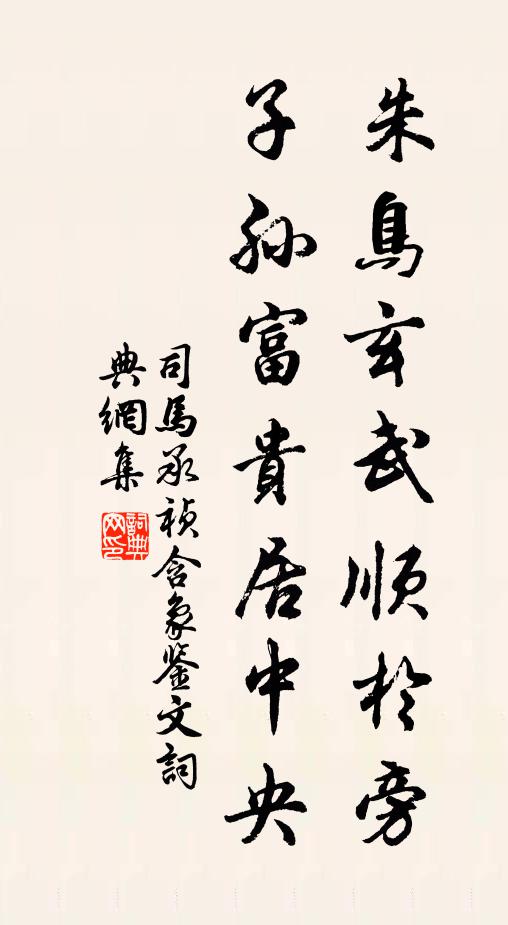 朱鳥玄武順於旁
子孫富貴居中央
司馬承禎含象鉴文詞
典網集
詞典
网印